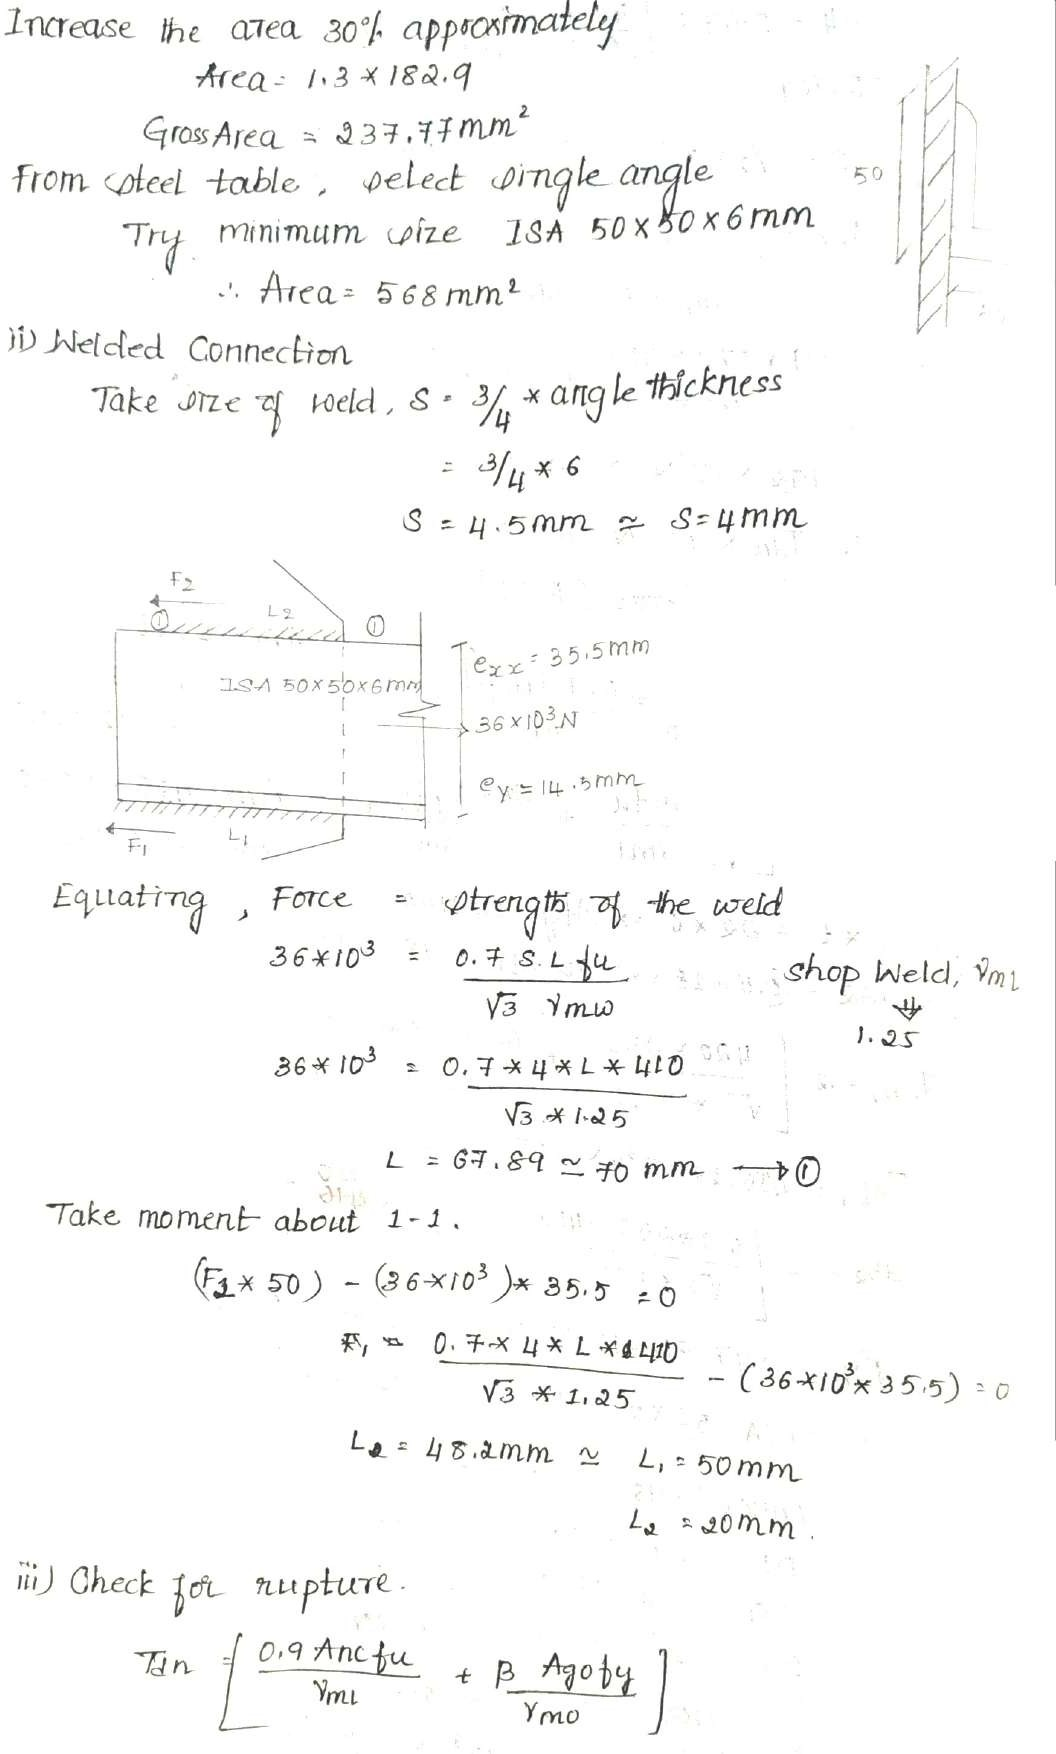 Increase the area 30% approximately
Area = 1.3 * 182.9
Gross Area = 237.77 mm²
From steel table, select single angle
50
Try minimum size ISA 50x50x6mm
∴ Area = 568 mm²
ii) Welded Connection
Take size of weld, S = 3/4 * angle thickness
= 3/4 * 6
S = 4.5mm ≃ S=4mm
F2
L2
① ①
exx = 35.5mm
ISA 50x50x6mm
36x10³N
ey = 14.5mm
L1
F1
Equating, Force = strength of the weld
36*10³ = 0.7 S.L fu / √3 γmw
shop Weld, γm1
⇓
1.25
36*10³ = 0.7*4*L*410 / √3 * 1.25
L = 67.89 ≃ 70 mm → ①
Take moment about 1-1.
(F1 * 50) - (36*10³)* 35.5 = 0
F1 = 0.7* 4* L * 410 / √3 * 1.25 - (36*10³* 35.5) = 0
L2 = 48.2mm ≃ L1 = 50mm
L2 = 20mm.
iii) Check for rupture.
Tdn = [ 0.9 Anc fu / γm1 + β Ago fy / γmo ]